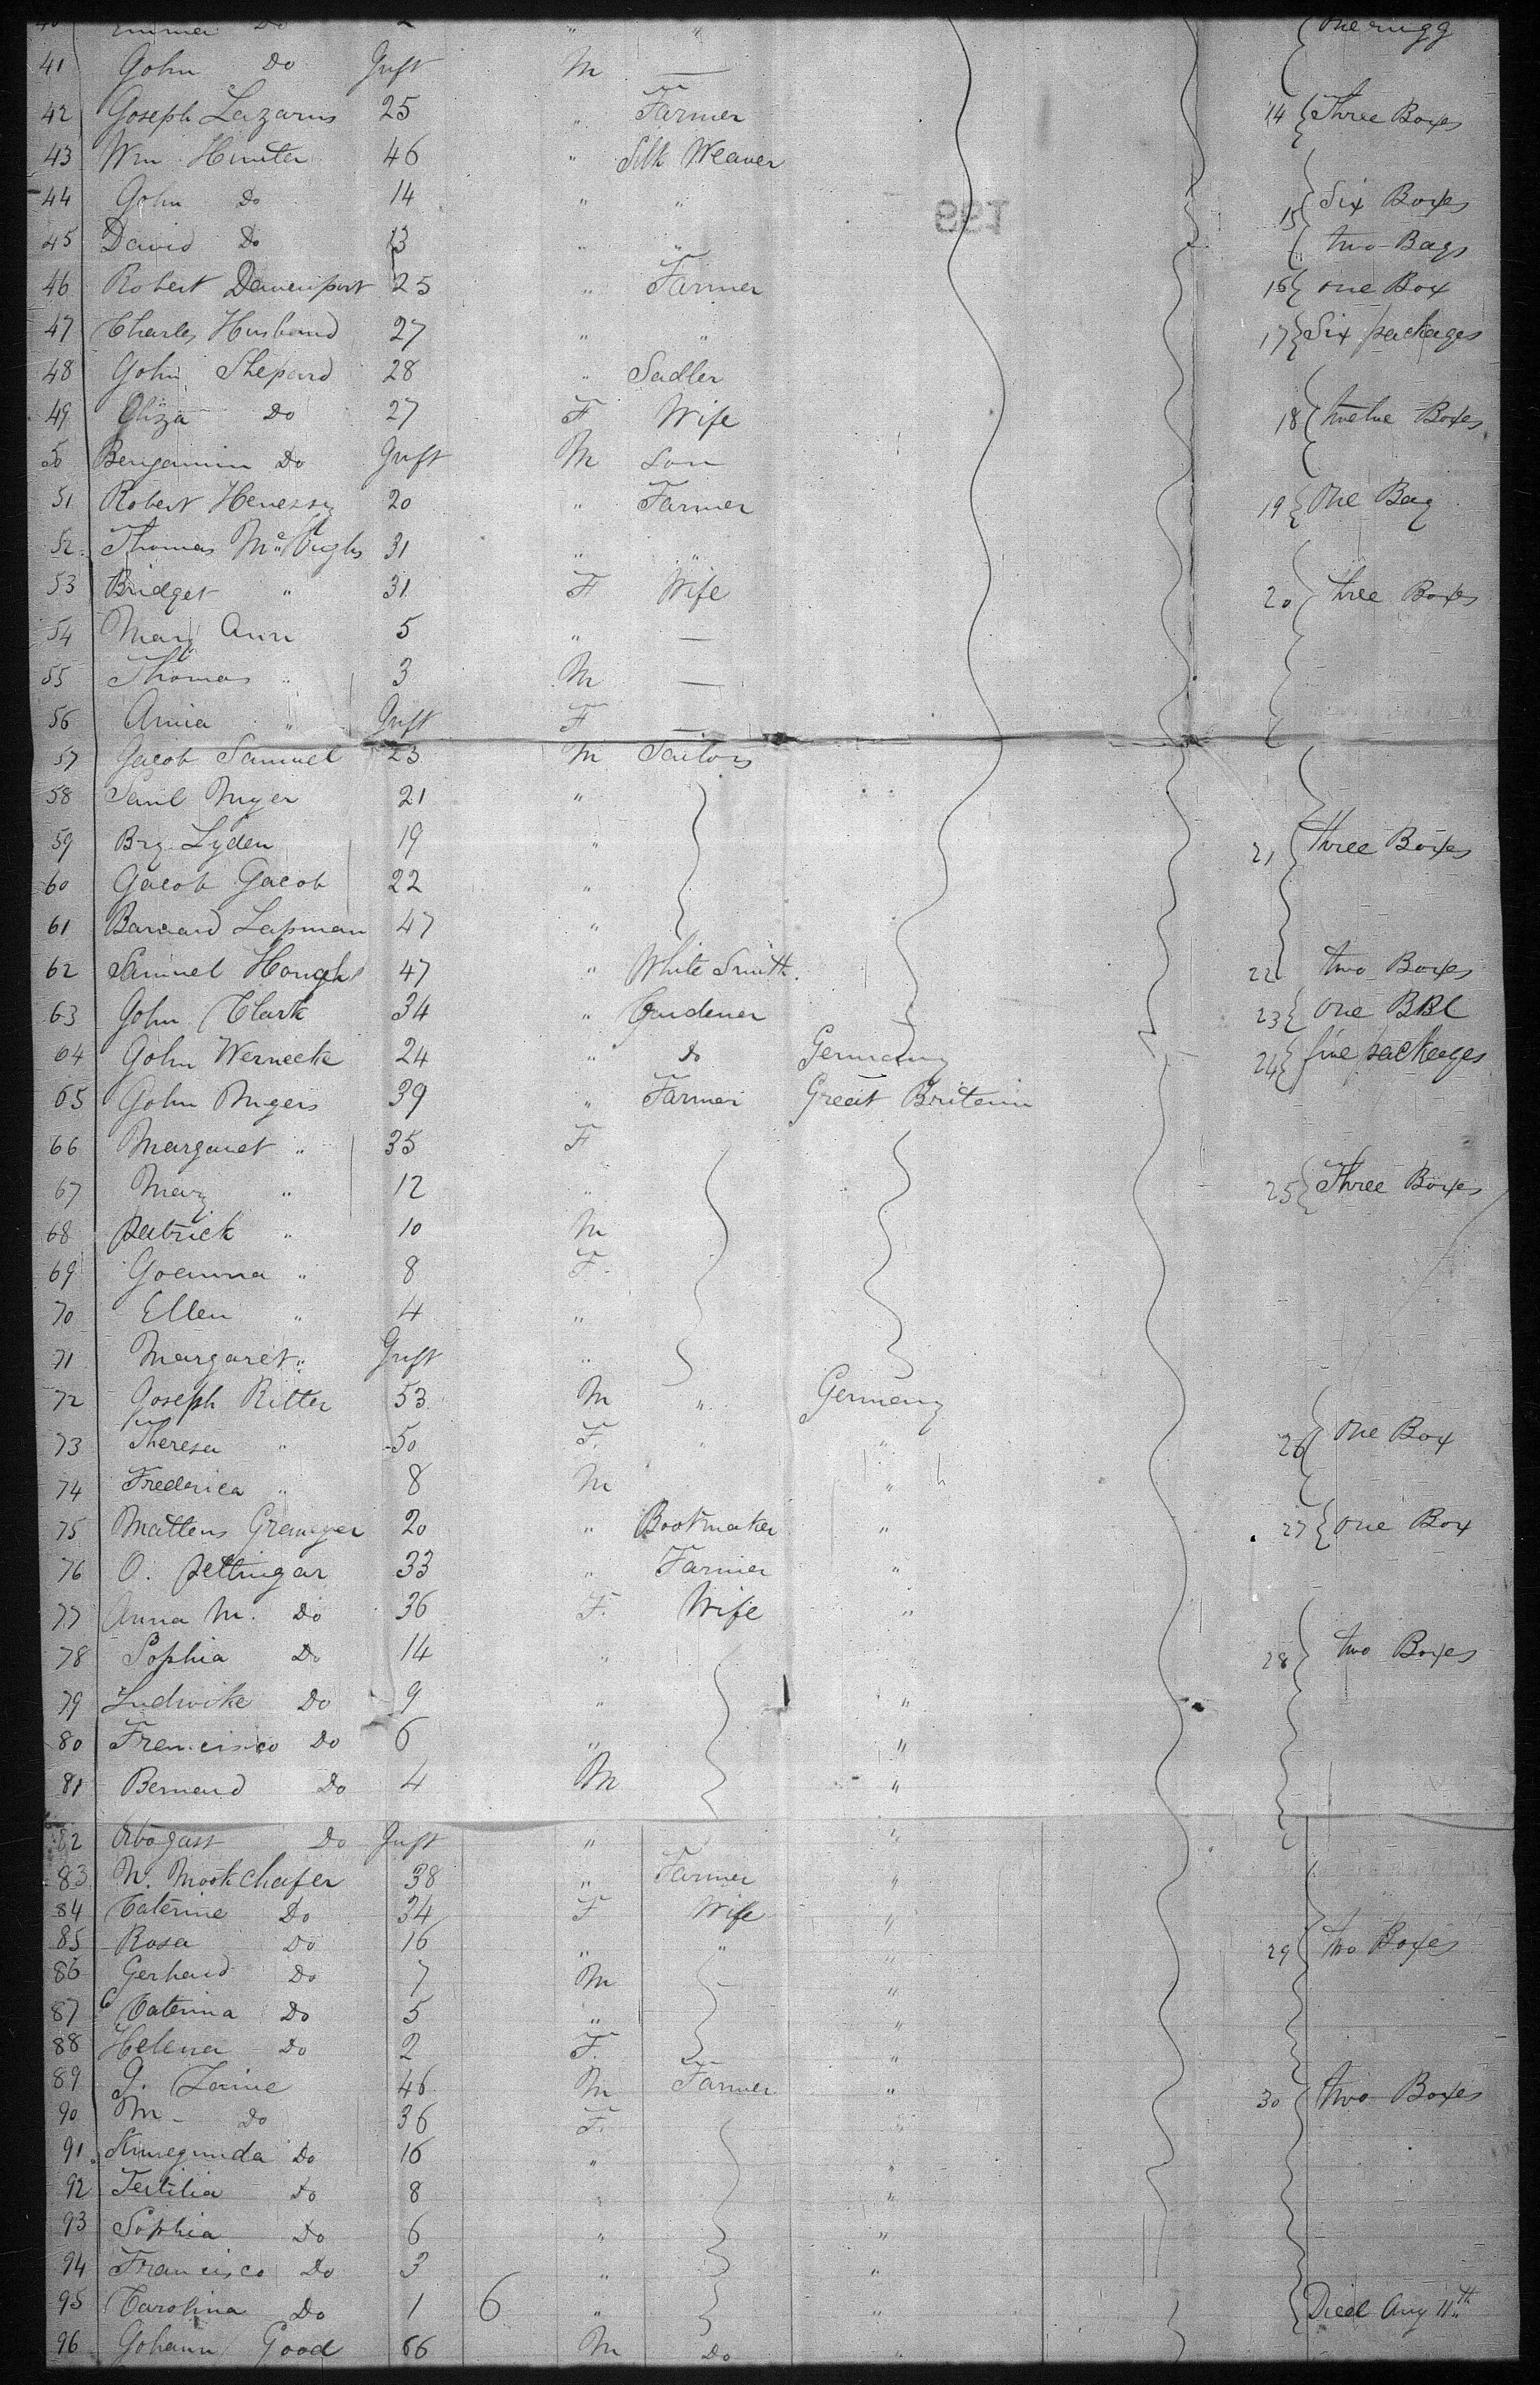 40 Emma Do 2 " " One rugg
41 John Do Inft M —
42 Joseph Lazarus 25 " Farmer 14 Three Boxes
43 Wm Hunter 46 " Silk Weaver
44 John Do 14 " " 15 Six Boxes
45 David Do 13 " " two Bags
46 Robert Davenport 25 " Farmer 16 one Box
47 Charles Husband 27 " " 17 Six packages
48 John Shepard 28 " Sadler
49 Eliza Do 27 F Wife 18 twelve Boxes
50 Benjamin Do Inft M Son
51 Robert Henessy 20 " Farmer 19 One Bag
52 Thomas Mc Hugh 31 " "
53 Bridget " 31 F Wife 20 three Boxes
54 Mary Ann 5 " —
55 Thomas " 3 M —
56 Anna " Inft F —
57 Jacob Samuel 23 M Tailors
58 Saul Myer 21 "
59 Brg Lyden 19 " 21 three Boxes
60 Jacob Jacob 22 "
61 Barnard Lapman 47 "
62 Samuel Hough 47 " White Smith 22 two Boxes
63 John Clark 34 " Gardener 23 one BBl
64 John Werneck 24 " do Germany 24 five packages
65 John Myers 39 " Farmer Great Britain
66 Margaret " 35 F
67 Mary " 12 " 25 Three Boxes
68 patrick " 10 M
69 Joanna " 8 F
70 Ellen " 4 "
71 Margaret " Inft "
72 Joseph Ritter 53 M " Germany
73 Theresa " 50 F " " 26 One Box
74 Frederica " 8 M "
75 Mattens 20 " Bootmaker " 27 one Box
76 O. pettingar 33 " Farmer "
77 Anna M. Do 36 F Wife "
78 Sophia Do 14 " 28 two Boxes
79 Ludwike Do 9 " "
80 Francisco Do 6 " "
81 Bernard Do 4 M "
82 Arbogast Do Inft " "
83 N. Mookchafer 38 " Farmer "
84 Caterine Do 34 F Wife "
85 Rosa Do 16 " " " 29 two Boxes
86 Gerhard Do 7 M "
87 Caterina Do 5 " "
88 Helena Do 2 F "
89 J. 46 M Farmer " 30 two Boxes
90 M Do 36 F "
91 Kunegunda Do 16 " "
92 Tertilia do 8 " "
93 Sophia Do 6 " "
94 Francisco Do 3 " "
95 Carolina Do 1 6 " " Died Aug 11th
96 Johann Good 66 M Do "